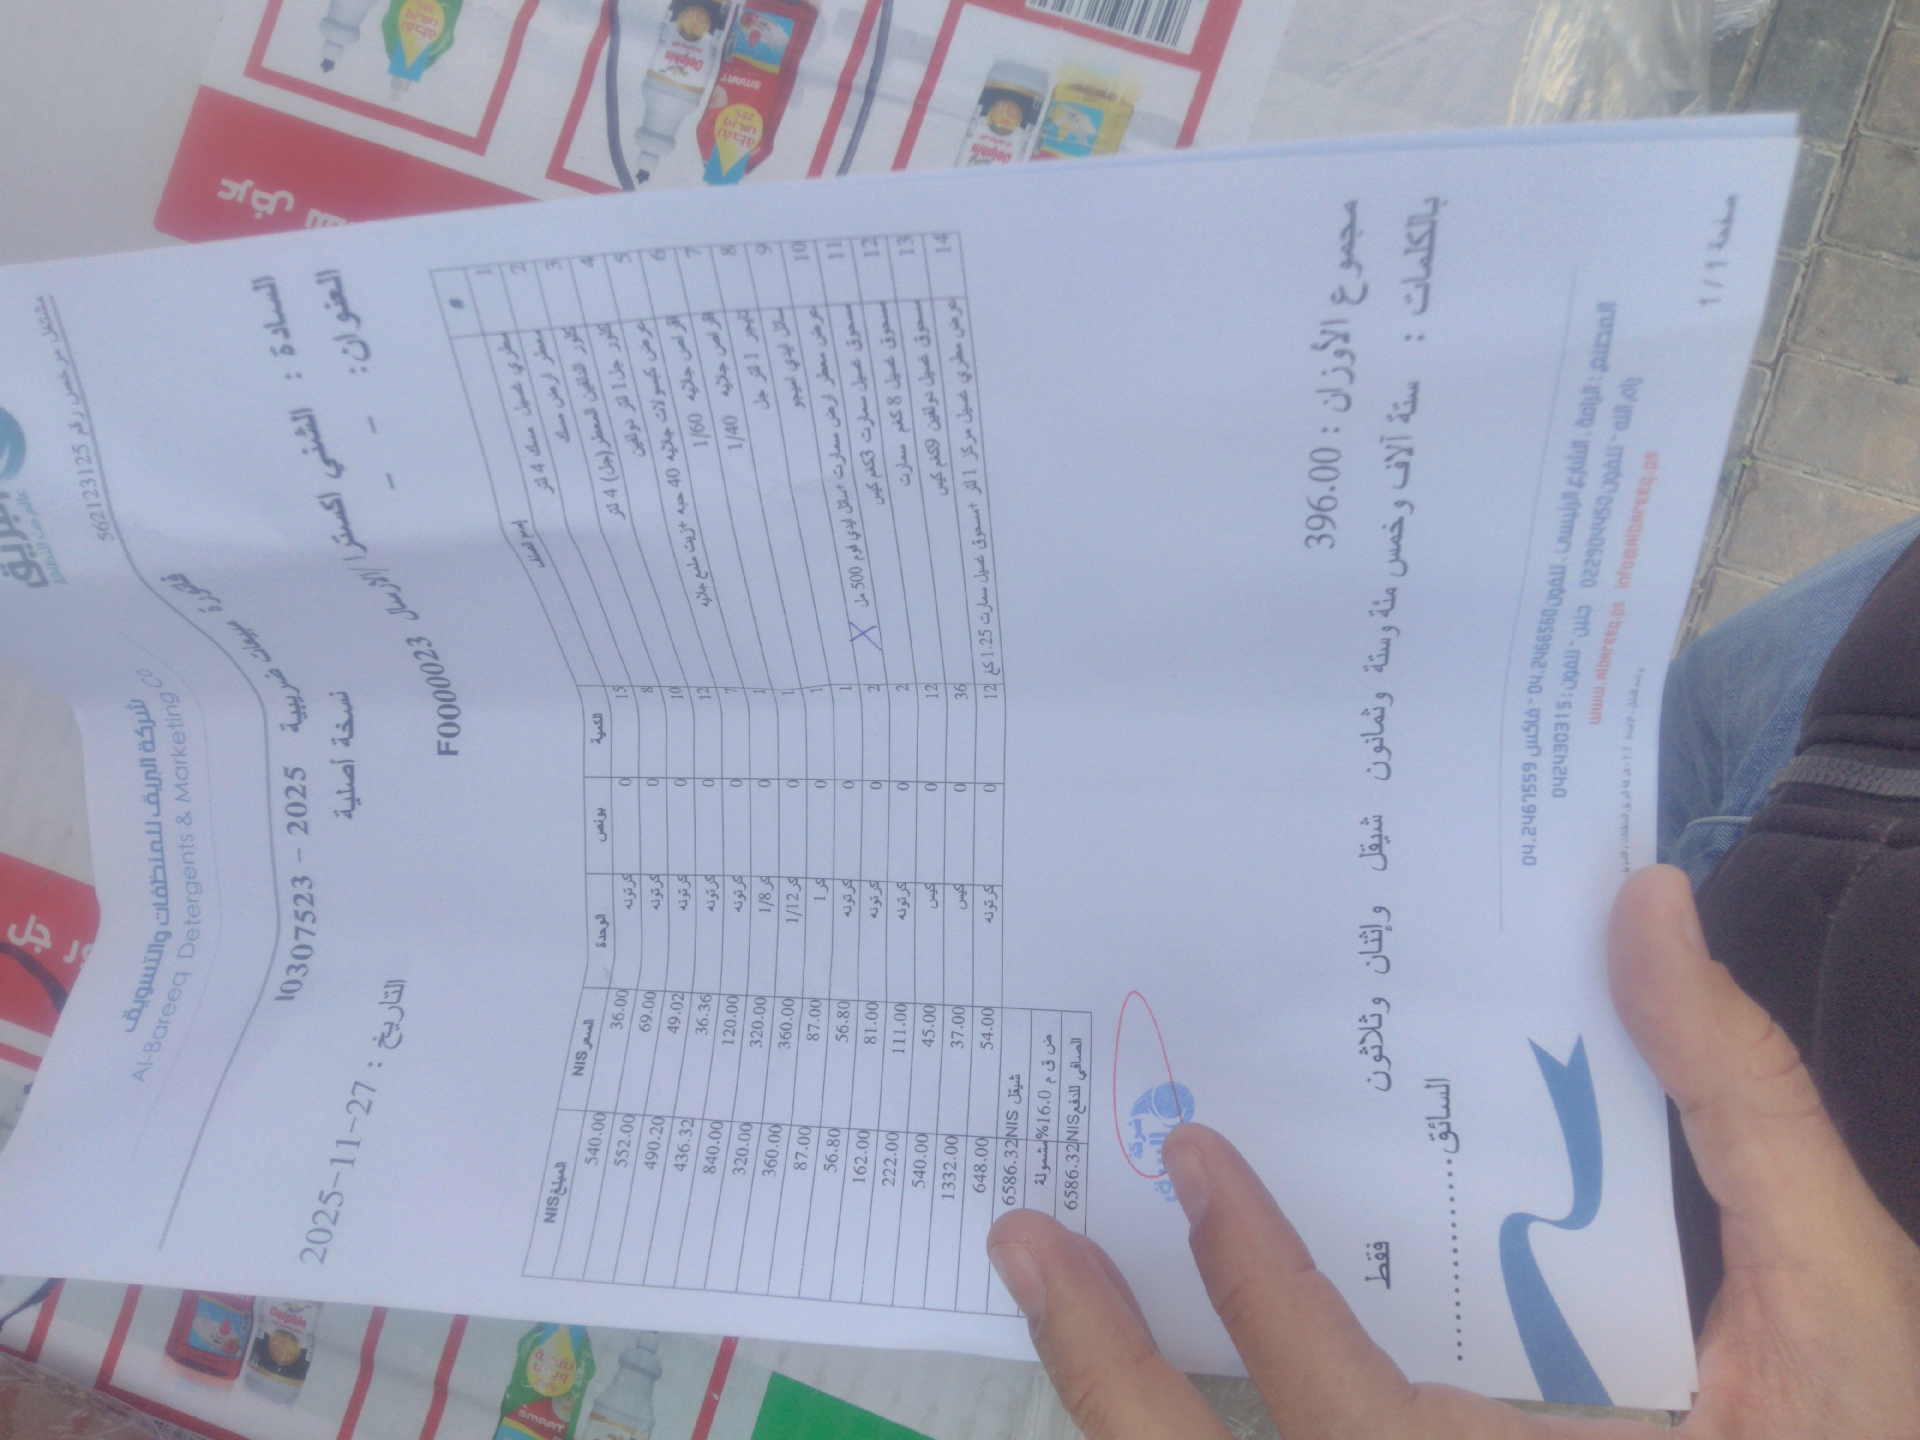 البريق
مشتغل مرخص رقم 562123125
شركة البريق للمنظفات والتسويق
Al-Bareeq Detergents & Marketing Co
فاتورة مبيعات ضريبية I0307523 - 2025
نسخة أصلية
السادة : الشني اكسترا/الارسال
العنوان: - -
التاريخ : 2025-11-27
F0000023
# إسم الصنف الكمية بونص الوحدة السعر NIS المبلغ NIS
1 مطري غسيل مسك 4 لتر 15 0 كرتونه 36.00 540.00
2 معطر ارض مسك 8 0 كرتونه 69.00 552.00
3 كلور الدلفين المعطر (جل) 4 لتر 10 0 كرتونه 49.02 490.20
4 كلور جل 1 لتر دولفين 12 0 كرتونه 36.36 436.32
5 عرض كبسولات جلاتيه 40 حبه +زيت ملمع جلاتيه 7 0 كرتونه 120.00 840.00
6 اقراص جلاتيه 1/60 1 0 كر 1/8 320.00 320.00
7 اقراص جلاتيه 1/40 1 0 كر 1/12 360.00 360.00
8 1 لتر جل 1 0 كر 1 87.00 87.00
9 سائل ايدي 1 0 كرتونه 56.80 56.80
10 عرض معطر ارض سمارت +سائل ايدي فوم 500 مل X 2 0 كرتونه 81.00 162.00
11 مسحوق غسيل سمارت 3كغم كيس 2 0 كرتونه 111.00 222.00
12 مسحوق غسيل 8 كغم سمارت 12 0 كيس 45.00 540.00
13 مسحوق غسيل دولفين 9كغم كيس 36 0 كيس 37.00 1332.00
14 عرض مطري غسيل مركز 1 لتر +مسحوق غسيل سمارت 1.25 كغ 12 0 كرتونه 54.00 648.00
شيقل NIS 6586.32
ض ق م 16.0% مشمولة
الصافي للدفع NIS 6586.32
مجموع الأوزان : 396.00
بالكلمات : ستة آلاف وخمس مئة وستة وثمانون شيقل وإثنان وثلاثون فقط
السائق
المصنع : الرامة ، الشارع الرئيسي ، تلفون 04.2466560 - فاكس 04.2467559
رام الله - تلفون 022900450 جنين - تلفون : 042430315
www.albareeq.ps info@albareeq.ps
صفحة 1 / 1
عرض
Dolphin
SMART